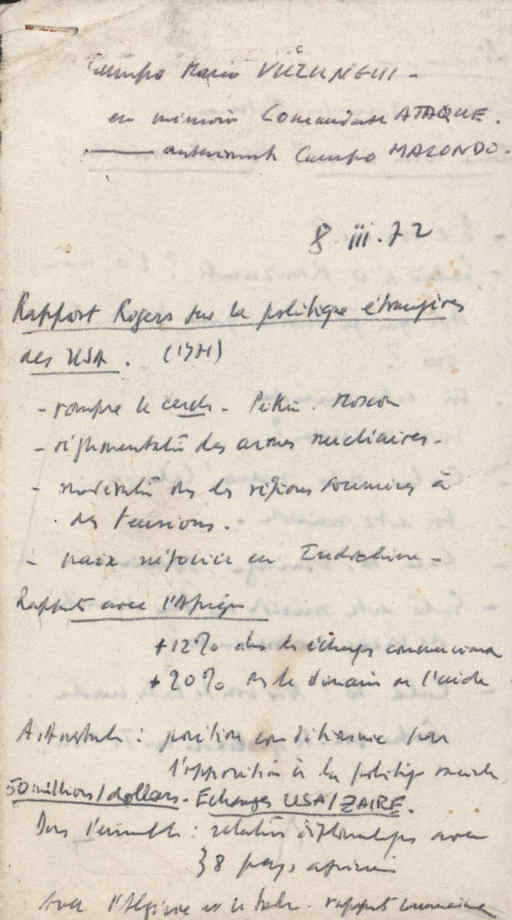 Campo Mario VUZUNGUI -
en mémoire Comandante ATAQUE.
Campo MACONDO.
8.III.72
Rapport Rogers sur la politique étrangères
des USA. (1971)
- rompre le cercle - Pékin. Moscou
- réglementation des armes nucléaires -
- modération ds les régions soumises à
des tensions.
- paix négociée en Indochine -
Rapports avec l'Afrique
+12% ds les échanges commerciaux
+20% ds le domaine de l'aide
A. Australe : position conditionnée par
l'opposition à la politique raciale
50 millions/dollars - Echanges USA/ZAIRE.
Dans l'ensemble : relations diplomatiques avec
38 pays africains
Avec l'Algérie rapport